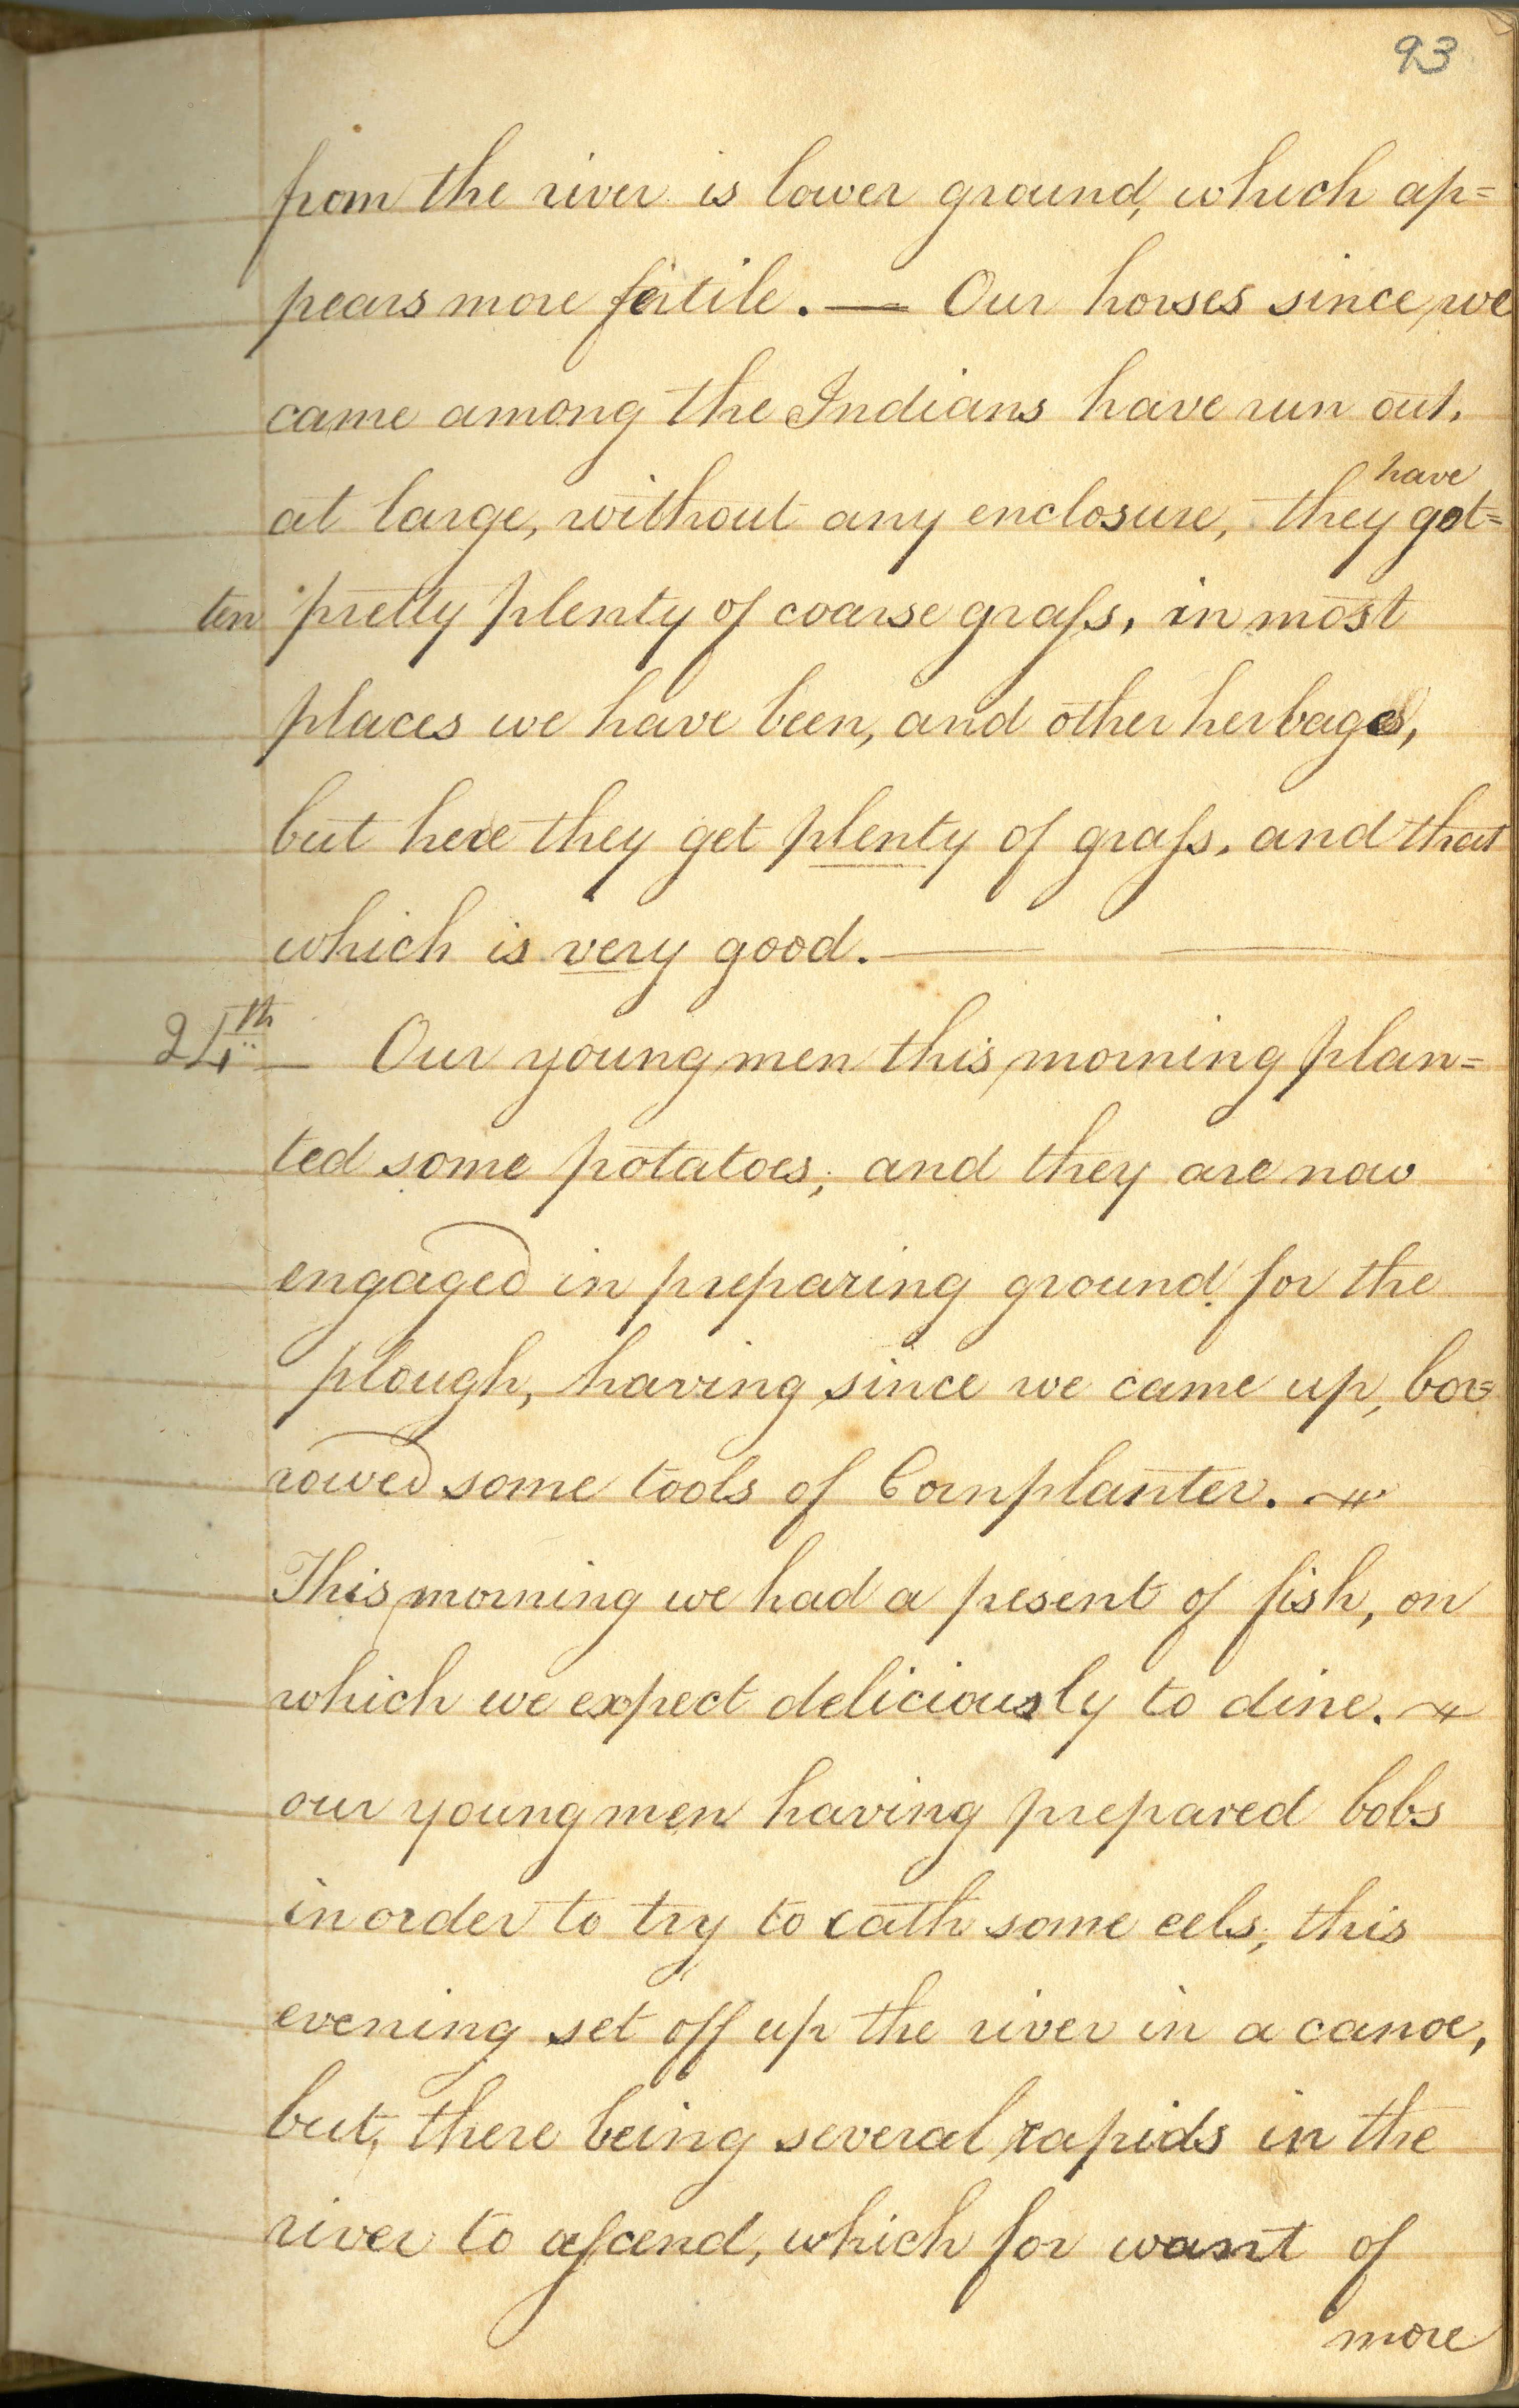 93
from the river is lower ground, which ap=
pears more fertile. — Our horses since we
came among the Indians have run out,
have
at large, without any enclosure, they got=
ten pretty plenty of coarse graſs, in most
places we have been, and other herbage,
but here they get plenty of graſs, and that
which is very good. —
24th — Our young men this morning plan=
ted some potatoes; and they are now
engaged in preparing ground for the
plough, having since we came up, bor=
rowed some tools of Cornplanter.
This morning we had a present of fish, on
which we expect deliciously to dine.
our young men having prepared bobs
in order to try to cath some eels, this
evening set off up the river in a canoe,
but, there being several rapids in the
river to aſcend, which for want of
more